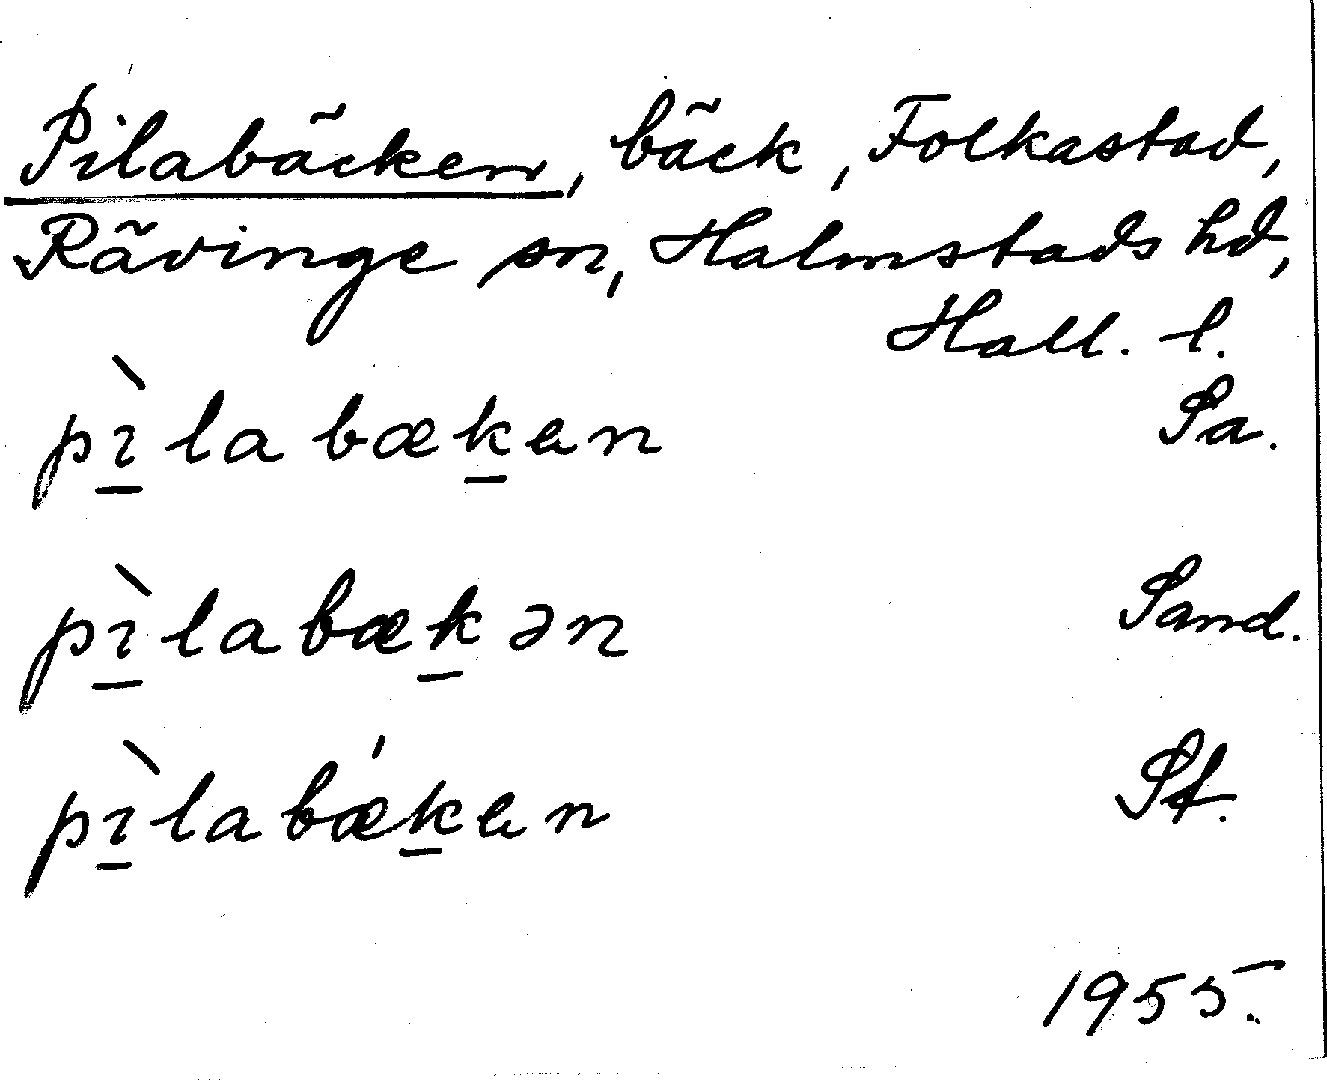 Pilabäcken, bäck, Folkastad,
Rävinge sn, Halmstads hd,
Hall. l.
pìlabæken Sa.
pìlabækən Sand.
pìlabǽken St.
1955.